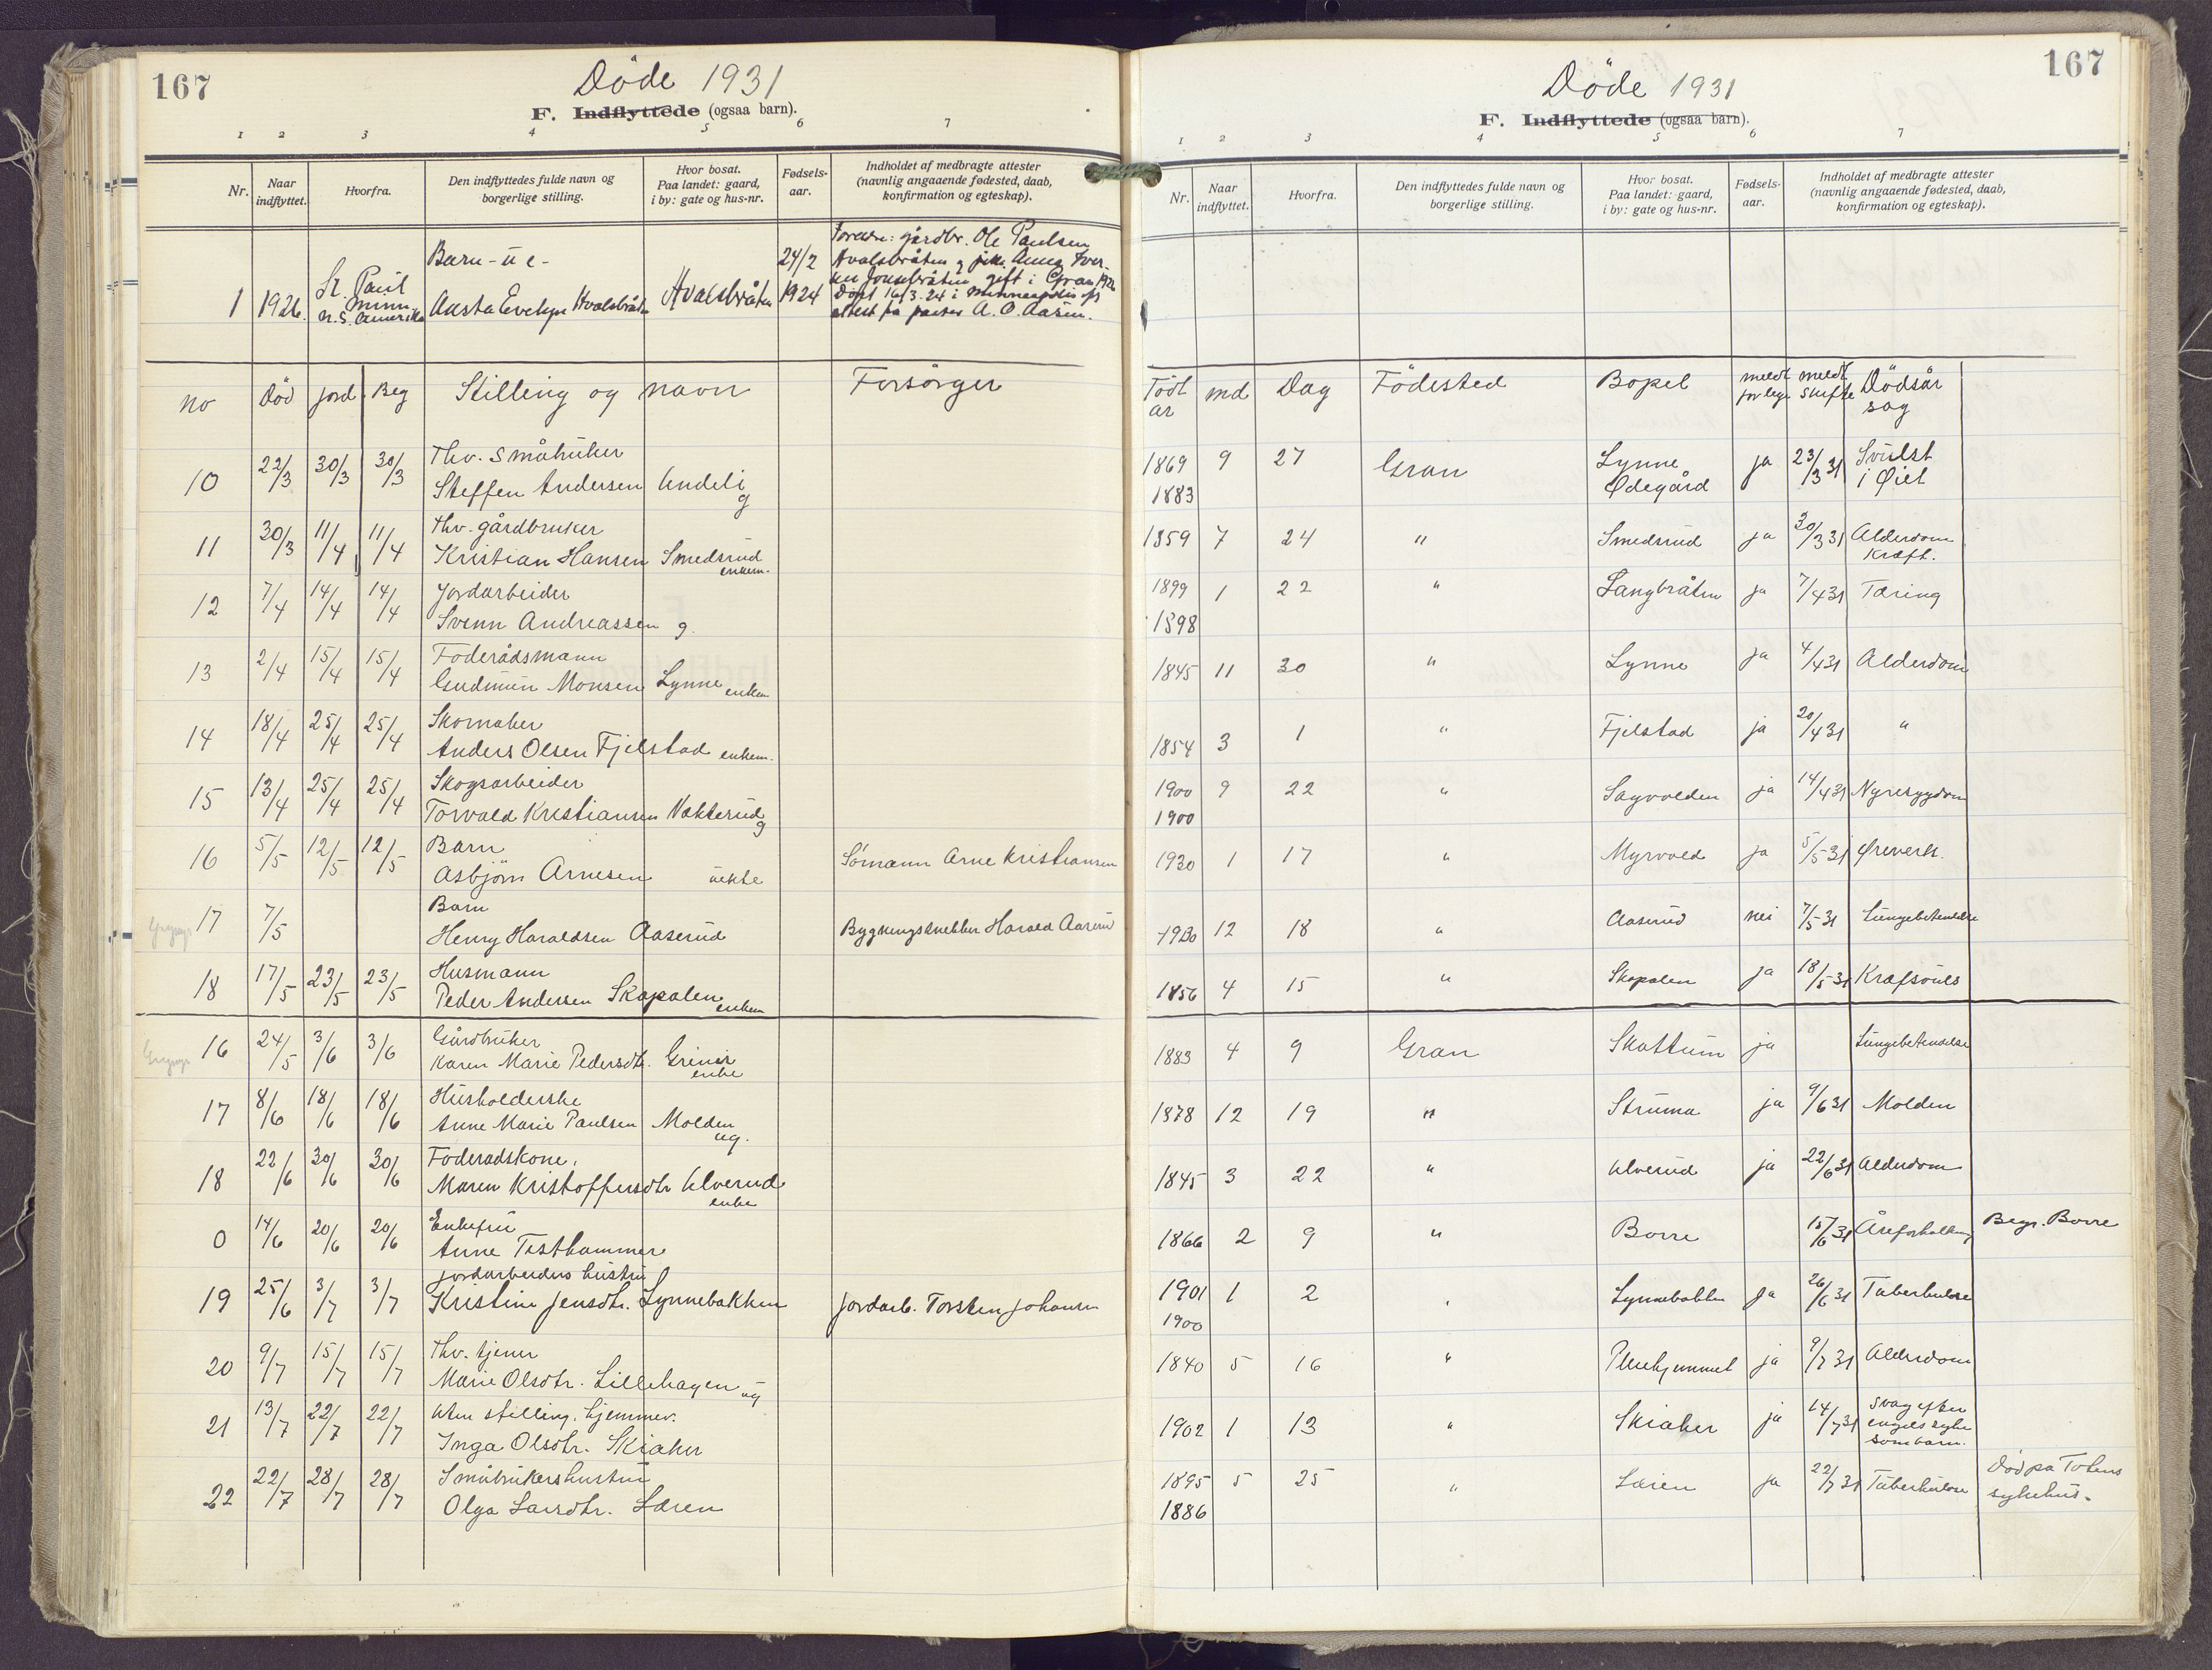 167
Döde 1931
F. Indflyttede (ogsaa barn).
1 2 3 4 5 6 7
Nr. Naar indflyttet. Hvorfra. Den indflyttedes fulde navn og borgerlige stilling. Hvor bosat. Paa landet: gaard, i by: gate og hus-nr. Fødsels-aar. Indholdet af medbragte attester (navnlig angaaende fødested, daab, konfirmation og egteskap).
Barn - u e -
1 1926. St. Paul Minn. N. S. Amerika Austa Evelyn Hvalsbråten Hvalsbråten 24/2 1924
Foreldre: gårdbr. Ole Paulsen
Hvalsbråten og Anna
gift i Gran 1926
Döpt 16/3.24 i Minneapolis
attest fra A. O. Aasen.
no Död jord. Beg Stilling og navn Forsörger
10 22/3 30/3 30/3 Fhv. småbruker
Steffen Andersen Undeli g
11 30/3 11/4 11/4 Fhv. gårdbruker
Kristian Hansen Smedsrud enkem.
12 7/4 14/4 14/4 Jordarbeider
Svenn Andreassen g.
13 2/4 15/4 15/4 Föderådsmann
Gudmun Monsen Lynne enkem
14 18/4 25/4 25/4 Skomaker
Anders Olsen Fjelstad enkem.
15 13/4 25/4 25/4 Skogsarbeider
Torvald Kristiansen Vakterud g
16 5/5 12/5 12/5 Barn
Asbjörn Arnesen uekte Sömann Arne Kristiansen
17 7/5 Barn
Henry Haraldsen Aaserud Bygningssnekker Harald Aaserud
18 17/5 23/5 23/5 Husmann
Peder Andersen Skapalen enkem
16 24/5 3/6 3/6 Gårdbruker
Karen Marie Pedersdtr. Grinir enke
17 8/6 18/6 18/6 Husholderske
Anne Marie Paulsen Molden ug.
18 22/6 30/6 30/6 Föderådskone.
Maren Kristoffersdtr Ulverud enke
0 14/6 20/6 20/6 Enkefru
Anne Testhammer
19 25/6 3/7 3/7 jordarbeiders hustru
Kristine Jensdtr. Lynnebakken Jordarb. Torsten Johansen
20 9/7 15/7 15/7 Fhv. tjener
Marie Olsdtr. Lillehagen ug
21 13/7 22/7 22/7 Uten stilling. hjemmev.
Inga Olsdtr. Skiaker
22 22/7 28/7 28/7 Småbrukershustru
Olga Larsdtr. Læren
167
Döde 1931
F. Indflyttede (ogsaa barn).
1 2 3 4 5 6 7
Nr. Naar indflyttet. Hvorfra. Den indflyttedes fulde navn og borgerlige stilling. Hvor bosat. Paa landet: gaard, i by: gate og hus-nr. Fødsels-aar. Indholdet af medbragte attester (navnlig angaaende fødested, daab, konfirmation og egteskap).
Födt år md Dag Födested Bopel meldt for lege meldt skifte Dödsårsag
1869 9 27 Gran Lynne Ødegård ja 23/3 31 Svulst i Øiet
1883
1859 7 24 " Smedsrud ja 30/3 31 Alderdom Kræft.
1899 1 22 " Langbråten ja 7/4 31 Tæring
1898
1845 11 30 " Lynne ja 4/4 31 Alderdom
1854 3 1 " Fjelstad ja 20/4 31 "
1900 9 22 " Sagvolden ja 14/4 31 Nyresygdom
1900
1930 1 17 " Myrvold ja 5/5 31 Øreverk.
1930 12 18 " Aaserud nei 7/5 31 Lungebetendelse
1856 4 15 " Skapalen ja 18/5 31 Kræfsvuls
1883 4 9 Gran Skattum ja Lungebetendelse
1878 12 19 " Struma ja 9/6 31 Molden
1845 3 22 " Ulverud ja 22/6 31 Alderdom
1866 2 9 " Borre 15/6 31 Åreforkalkning Begr. Borre
1901 1 2 " Lynnebakken ja 26/6 31 Tuberkulose
1900
1840 5 16 " Pleiehjemmet ja 9/7 31 Alderdom
1902 1 13 " Skiaker ja 14/7 31 svag efter engelsksyke som barn.
1895 5 25 " Læren ja 22/7 31 Tuberkulose Död på Totens sykehus.
1886